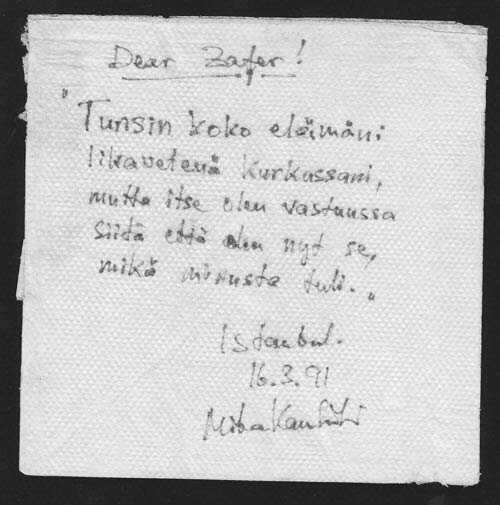 Dear Zafer!
"Tunsin koko elämäni
likavetenä kurkussani,
mutta itse olen vastuussa
siitä että olen nyt se,
mikä minusta tuli."
Istanbul.
16.3.91
Mika Kaurismäki